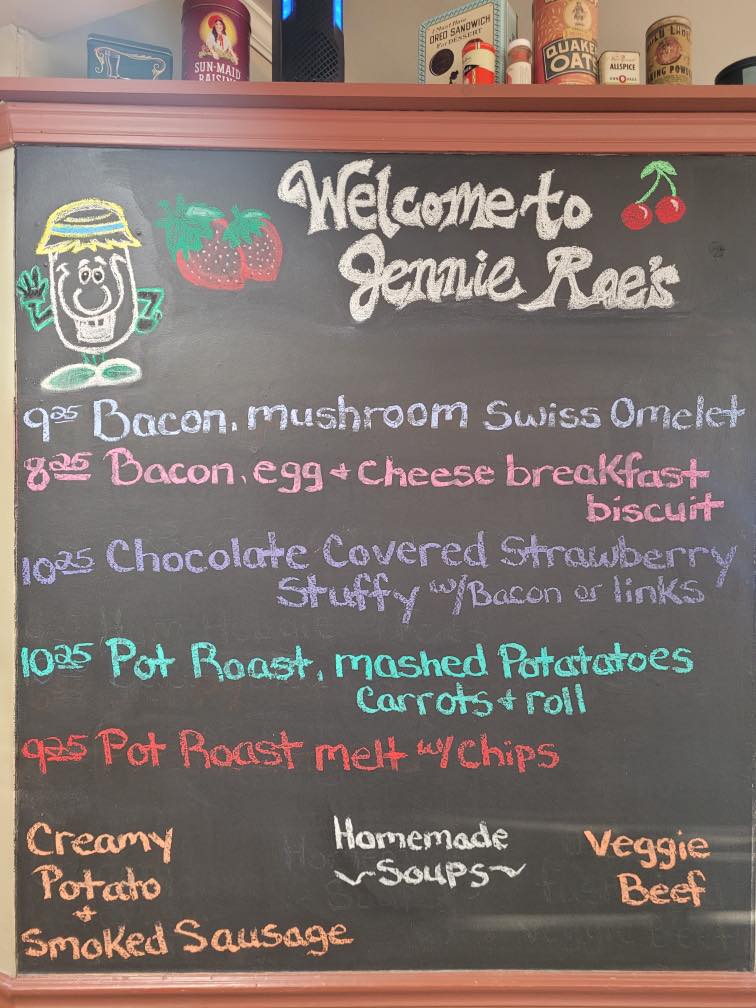 I Must Have
OREO SANDWICH
For DESSERT
SUN-MAID
RAISINS
QUAKER
OATS
ALLSPICE
Welcome to
Jennie Rae's
9 25 Bacon, mushroom Swiss Omelet
8 25 Bacon, egg + cheese breakfast
biscuit
10 25 Chocolate Covered Strawberry
Stuffy w/Bacon or links
10 25 Pot Roast, mashed Potatatoes
Carrots + roll
9 25 Pot Roast melt w/ Chips
Creamy
Potato
+
Smoked Sausage
Homemade
~Soups~
Veggie
Beef